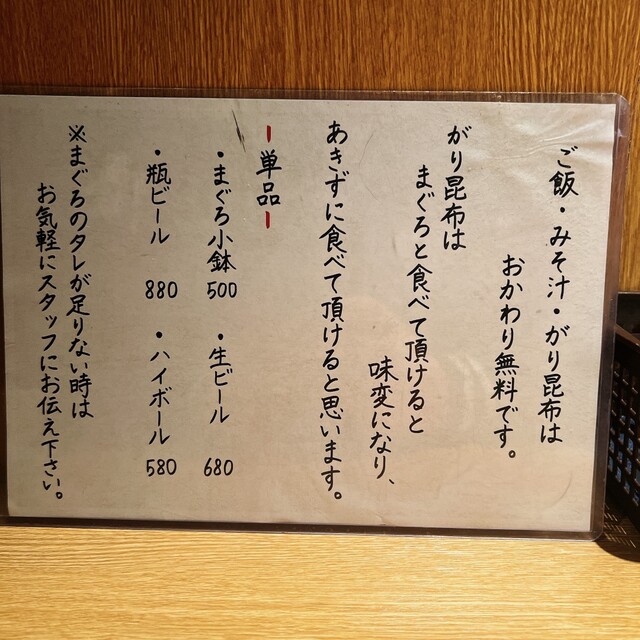 ご飯・みそ汁・がり昆布は
おかわり無料です。
がり昆布は
まぐろと食べて頂けると
味変になり、
あきずに食べて頂けると思います。
ー単品ー
・まぐろ小鉢 500
・生ビール 680
・瓶ビール 880
・ハイボール 580
※まぐろのタレが足りない時は
お気軽にスタッフにお伝え下さい。